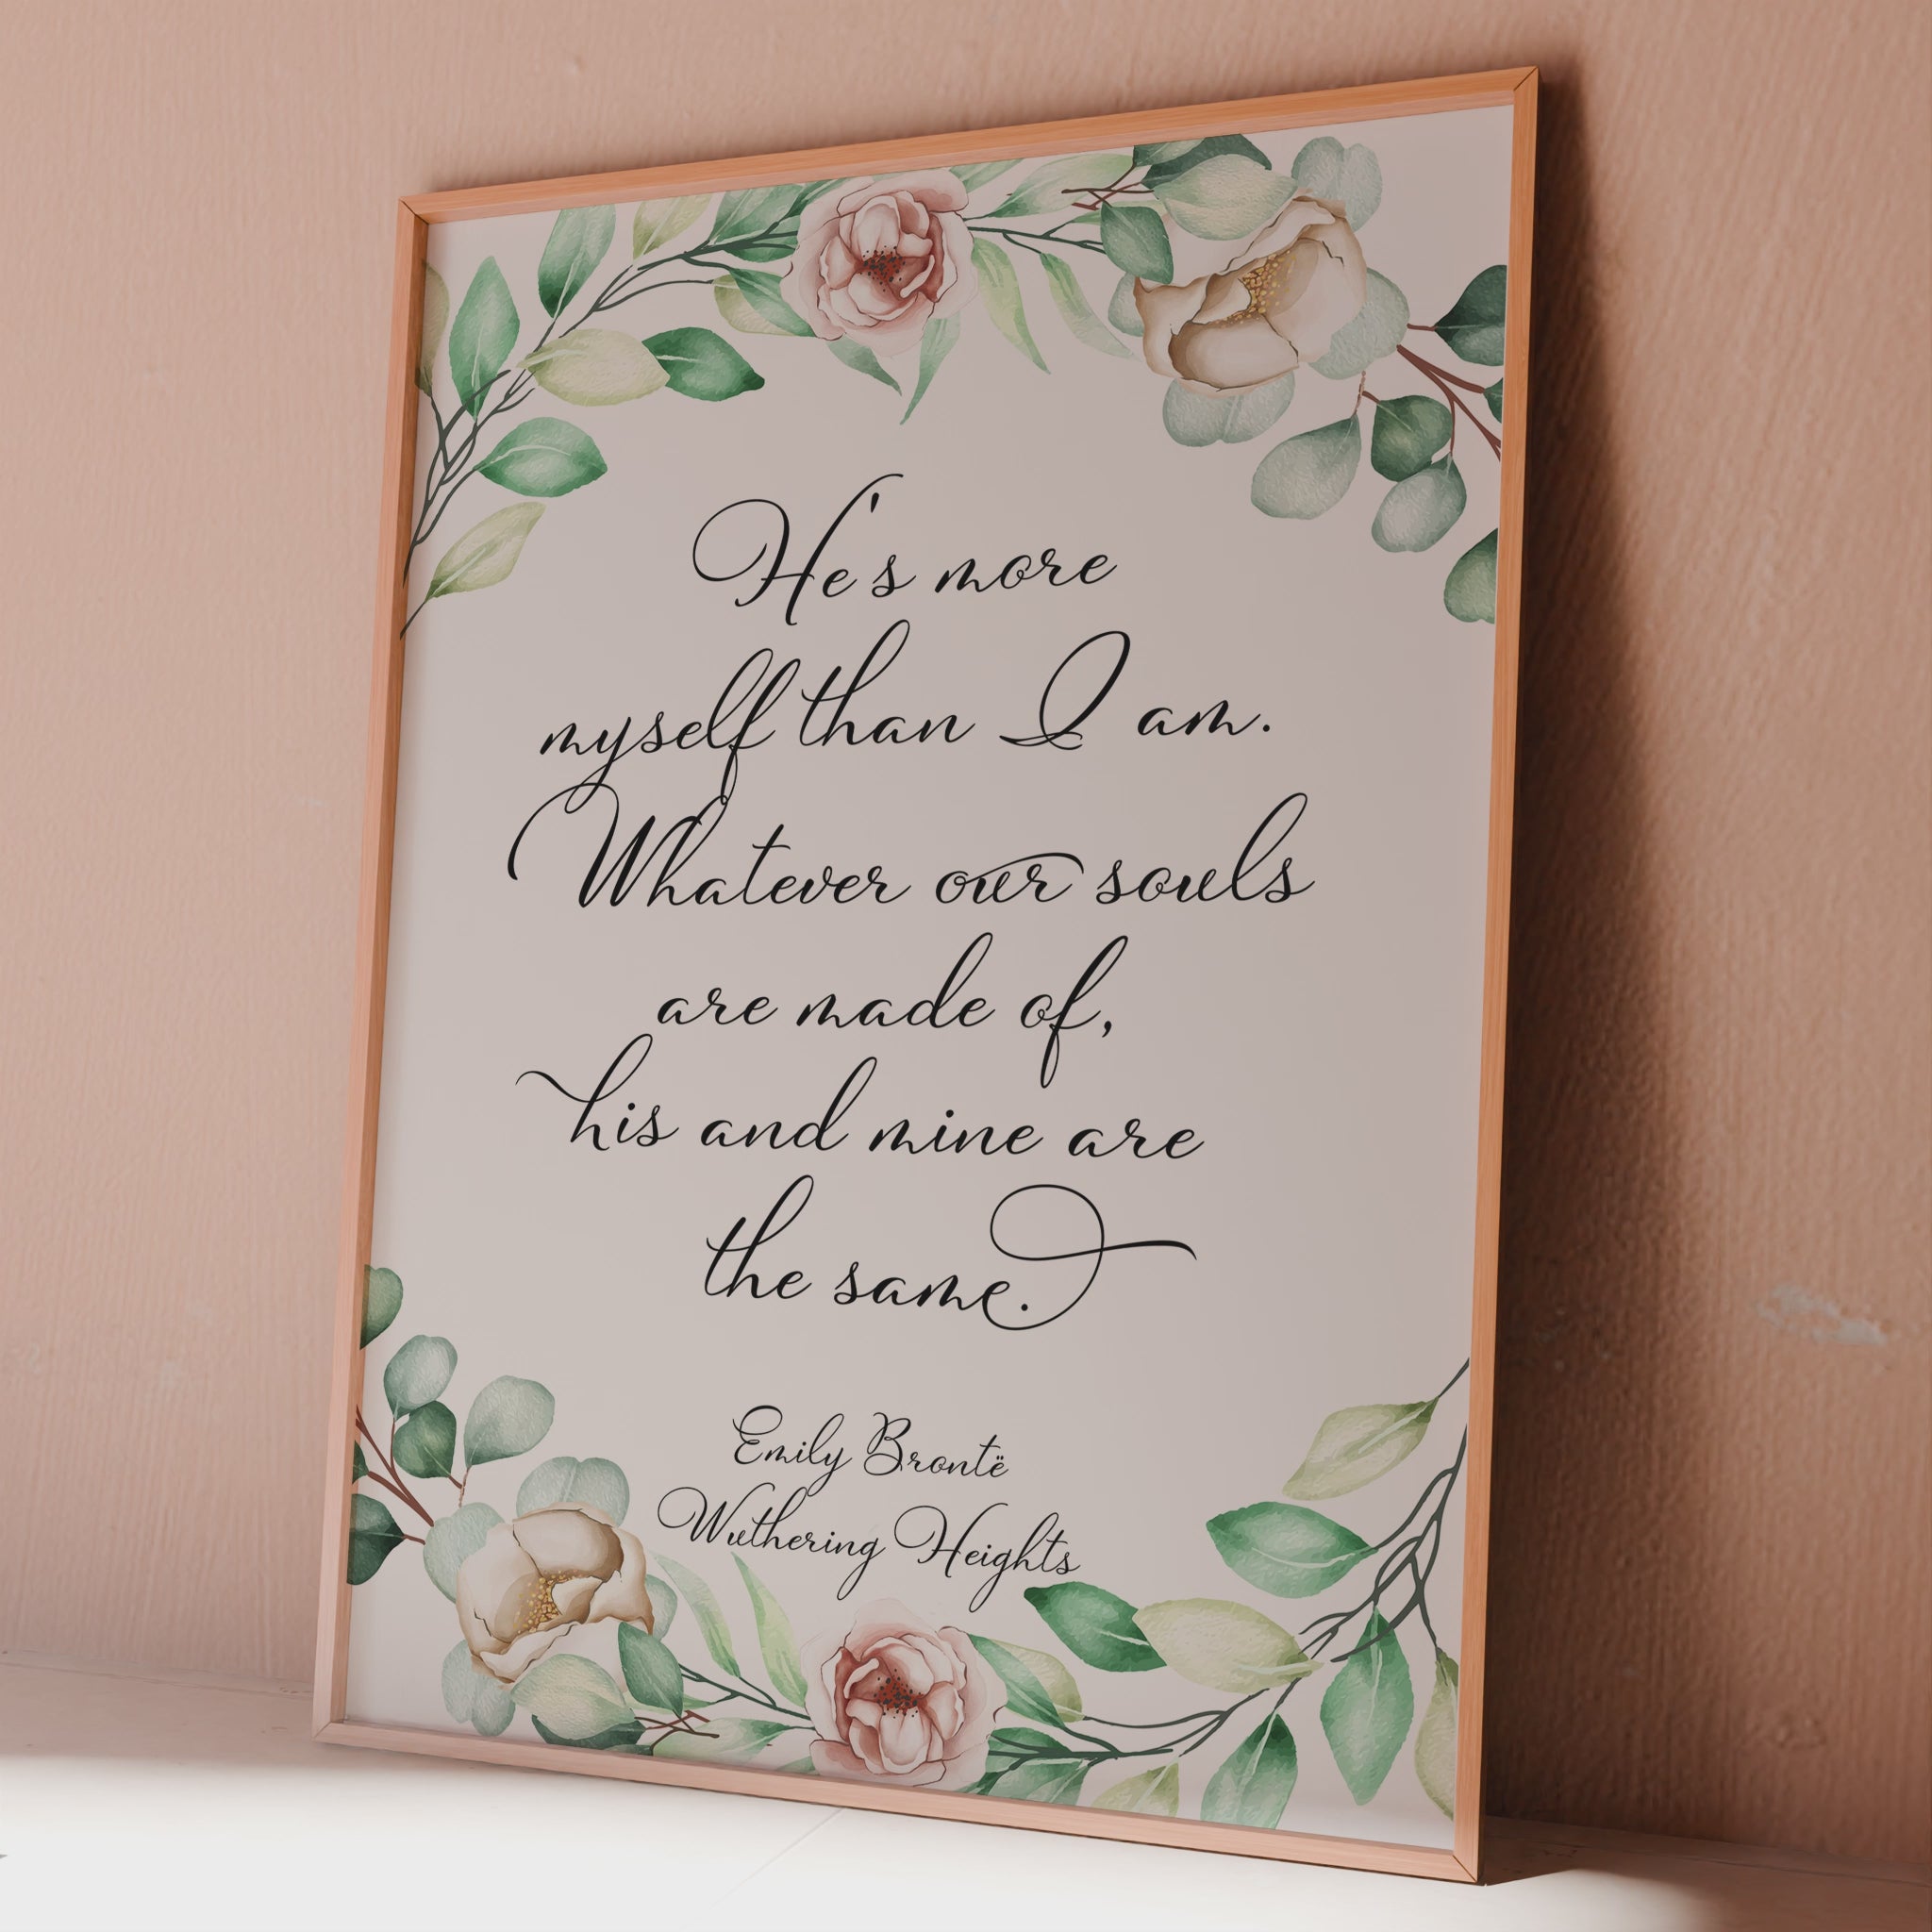 He's more
myself than I am.
Whatever our souls
are made of,
his and mine are
the same.
Emily Brontë
Wuthering Heights